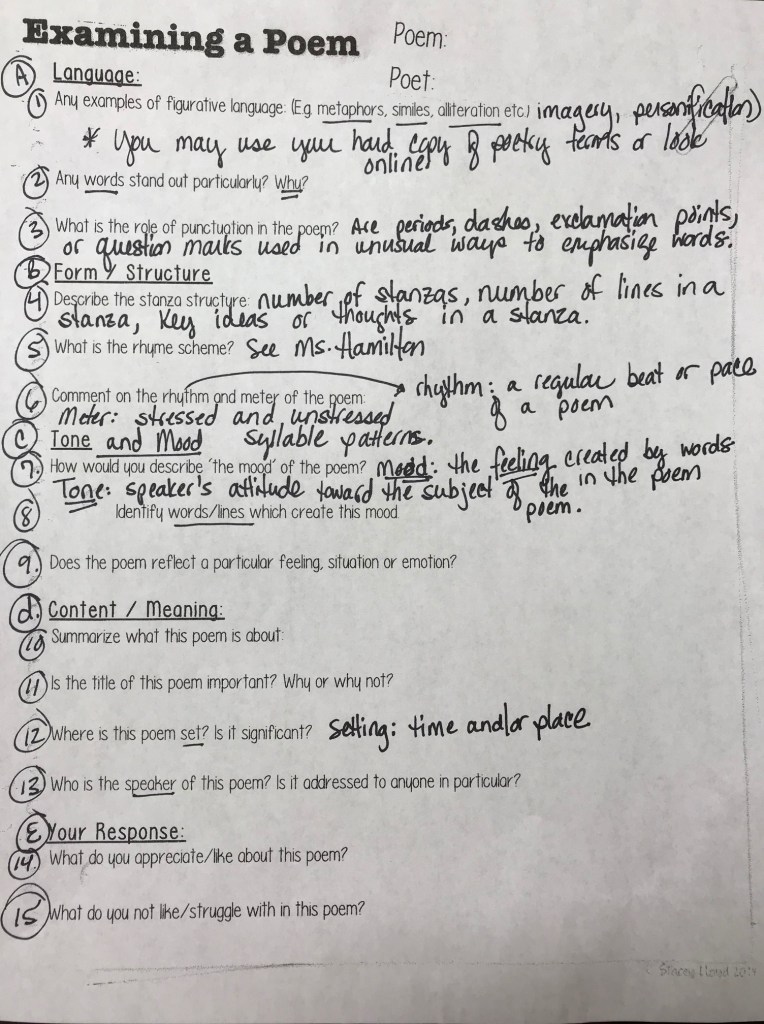 Examining a Poem Poem:
Poet:
A Language:
1 Any examples of figurative language: (Eg metaphors, similes, alliteration etc) imagery, personification)
* You may use your hard copy of poetry terms or look
online
2 Any words stand out particularly? Why?
3 What is the role of punctuation in the poem? Are periods, dashes, exclamation points,
or question marks used in unusual ways to emphasize words.
b Form & Structure
4 Describe the stanza structure: number of stanzas, number of lines in a
stanza, key ideas or thoughts in a stanza.
5 What is the rhyme scheme? See Ms. Hamilton
6 Comment on the rhythm and meter of the poem: rhythm: a regular beat or pace
of a poem
Meter: stressed and unstressed
syllable patterns.
C Tone and Mood
7. How would you describe 'the mood' of the poem? Mood: the feeling created by words
in the poem
Tone: speaker's attitude toward the subject of the
poem.
8 Identify words/lines which create this mood
9. Does the poem reflect a particular feeling, situation or emotion?
d. Content / Meaning:
10 Summarize what this poem is about:
11 Is the title of this poem important? Why or why not?
12 Where is this poem set? Is it significant? Setting: time and/or place
13 Who is the speaker of this poem? Is it addressed to anyone in particular?
E Your Response:
14. What do you appreciate/like about this poem?
15 What do you not like/struggle with in this poem?
Stacey Lloyd 2014